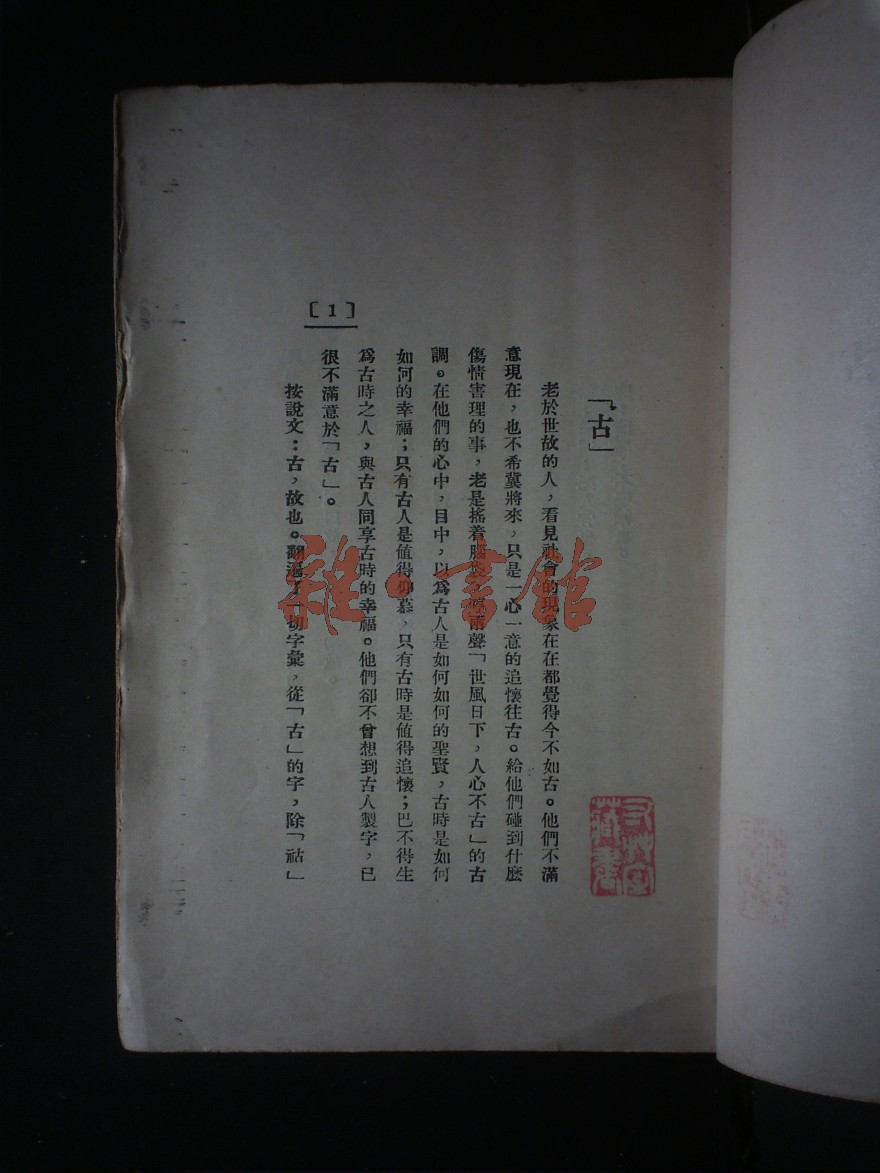 「古」
老於世故的人，看見社會的現象在在都覺得今不如古。他們不滿
意現在，也不希冀將來，只是一心一意的追懷往古。給他們碰到什麼
傷情害理的事，老是搖着腦袋，哼兩聲「世風日下，人心不古」的古
調。在他們的心中，目中，以爲古人是如何如何的聖賢，古時是如何
如何的幸福；只有古人是值得仰慕，只有古時是值得追懷；巴不得生
爲古時之人，與古人同享古時的幸福。他們卻不曾想到古人製字，已
很不滿意於「古」。
按說文：古，故也。翻遍了一切字彙，從「古」的字，除「祜」
[1]
雜·書館
藏書